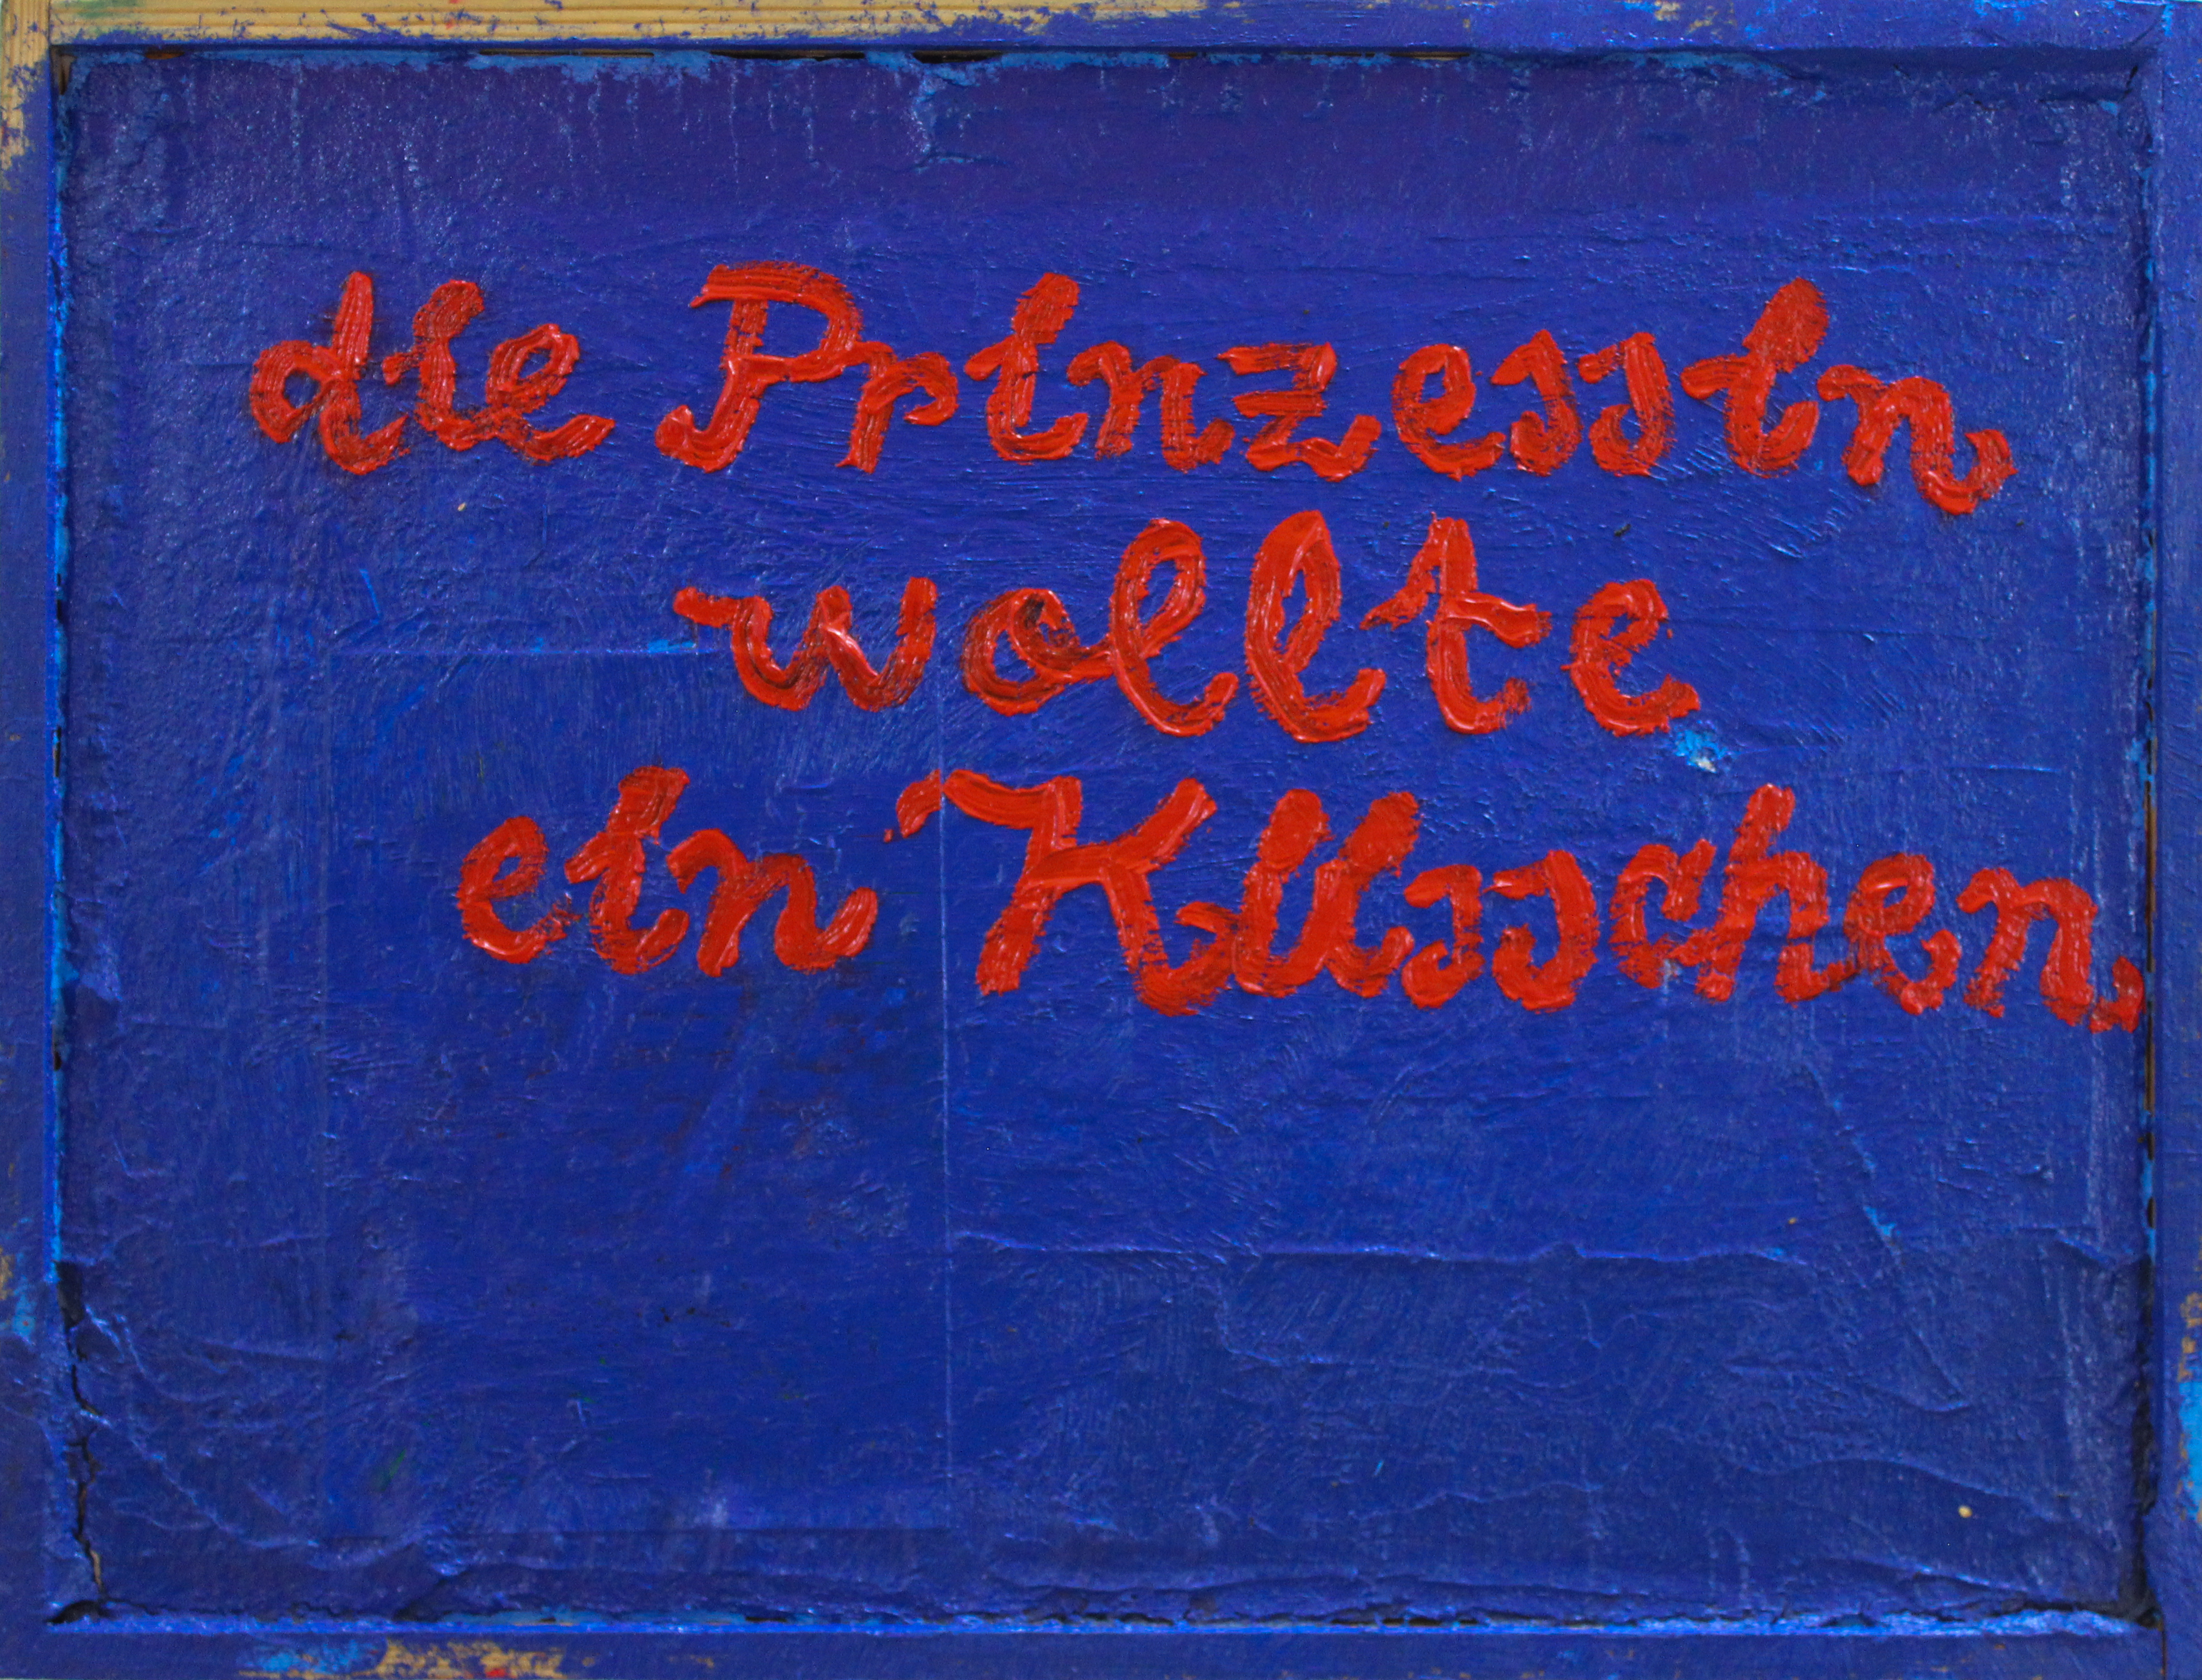 die Prinzessin
wollte
ein Küsschen.